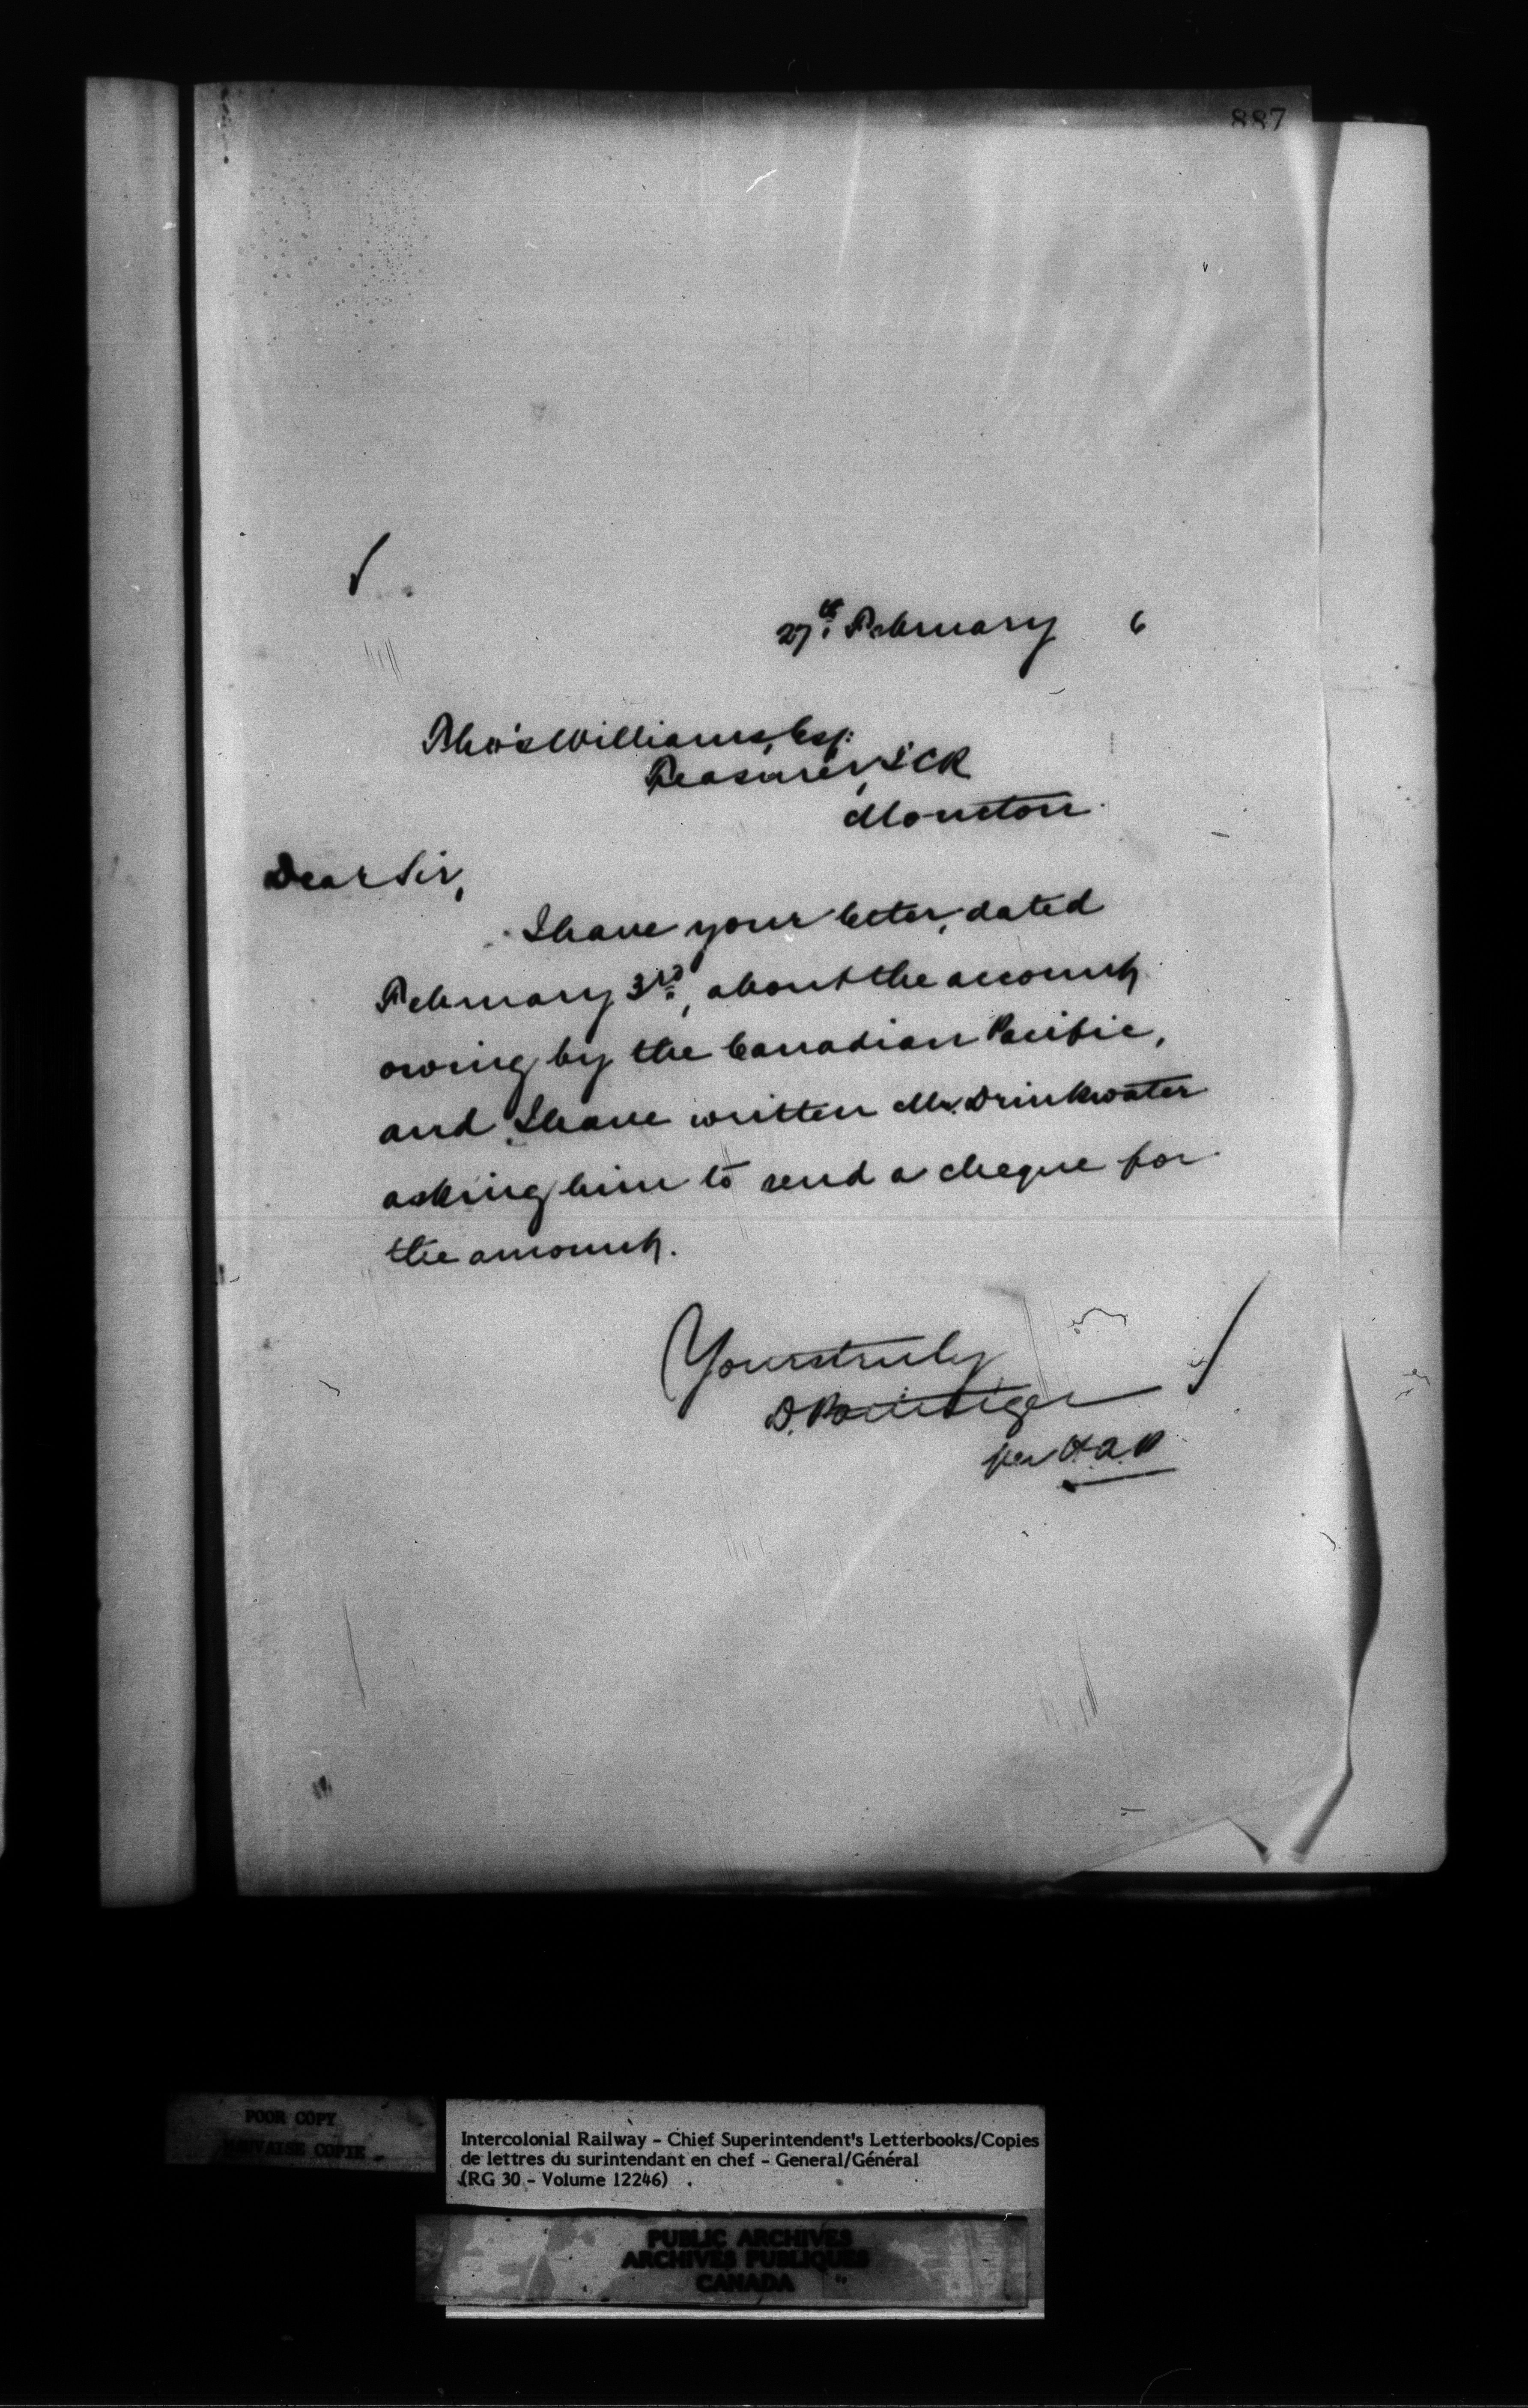 887
27th February 6
Tho's Williams, Esq:
Treasurer, ICR
Moncton.
Dear Sir,
I have your letter, dated
February 3rd, about the account
owing by the Canadian Pacific,
and I have written Mr. Drinkwater
asking him to send a cheque for
the amount.
Yours truly
D. Pottinger
per
POOR COPY
MAUVAISE COPIE
Intercolonial Railway - Chief Superintendent's Letterbooks/Copies
de lettres du surintendant en chef - General/Général
(RG 30 - Volume 12246)
PUBLIC ARCHIVES
ARCHIVES PUBLIQUES
CANADA